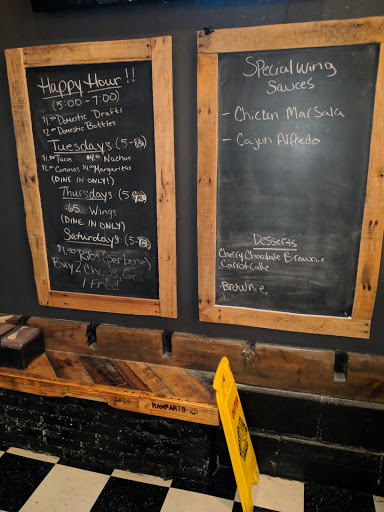 Happy Hour!!
(5:00-7:00)
Domestic Drafts
$2.00 Domestic Bottles
Tuesdays (5-
$1.00 Tacos Nachos
Coronas $4.00 Margaritas
(DINE IN ONLY!)
Thursdays (5-
.65 Wings
(DINE IN ONLY)
Saturdays (5-
$1.00 Ribs (per bone)
Buy 2 Get
1 Free
Special Wing
Sauces
- Chicken Marsala
- Cajun Alfredo
Desserts
Cherry Chocolate Brownie
Carrot Cake
Brownie